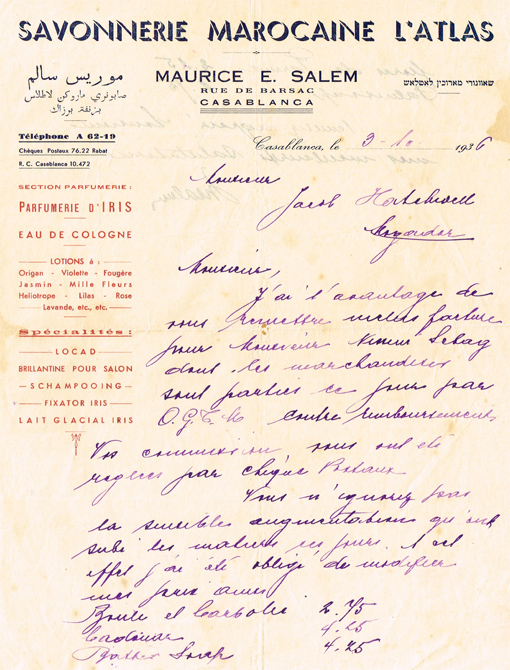 SAVONNERIE MAROCAINE L'ATLAS
موريس سالم
MAURICE E. SALEM
RUE DE BARSAC
CASABLANCA
Téléphone A 62-19
Chèques Postaux 76.22 Rabat
R. C. Casablanca 10.472
Casablanca, le 3-10 1936
Monsieur
Jacob
Mogador
SECTION PARFUMERIE :
PARFUMERIE D'IRIS
EAU DE COLOGNE
LOTIONS à :
Origan - Violette - Fougère
Jasmin - Mille Fleurs
Heliotrope - Lilas - Rose
Lavande, etc., etc.
Spécialités :
LOCAD
BRILLANTINE POUR SALON
SCHAMPOOING
FIXATOR IRIS
LAIT GLACIAL IRIS
Monsieur,
J'ai l'avantage de
vous remettre inclus facture
pour Monsieur Sebag
dont les marchandises
sont parties ce jour par
contre remboursement
Vos commission vous ont été
reglées par chèque Postaux
Vous n'ignorez pas
la sensible augmentation qu'ont
subi les matières ces jours
effet j'ai été obligé de modifier
mes prix ainsi
Boule et Carbolic 2.75
4.25
Soap 4.25